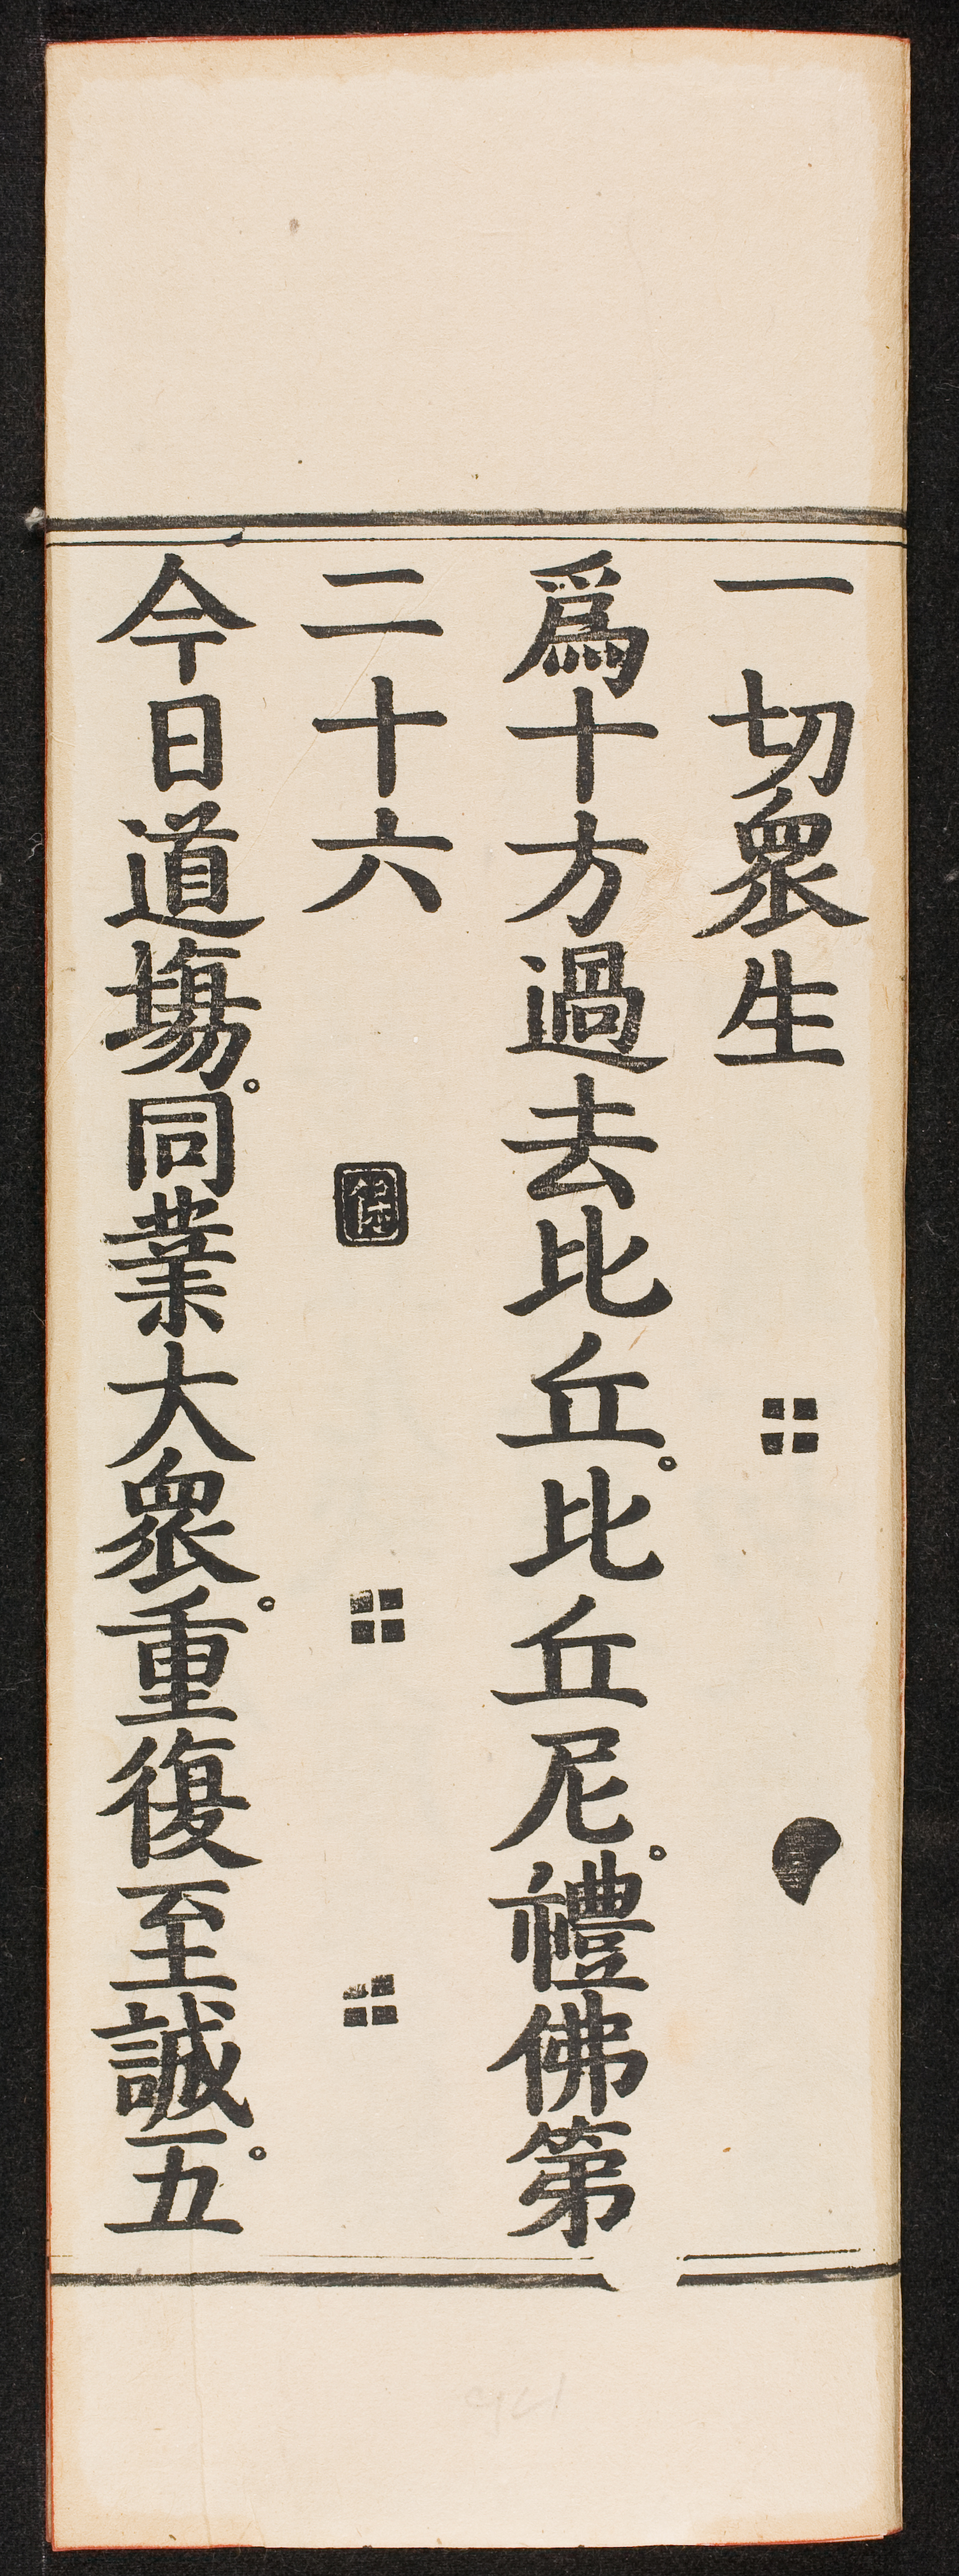 一切衆生
爲十方過去比丘。比丘尼。禮佛第
二十六
今日道塲。同業大衆。重復至誠。五